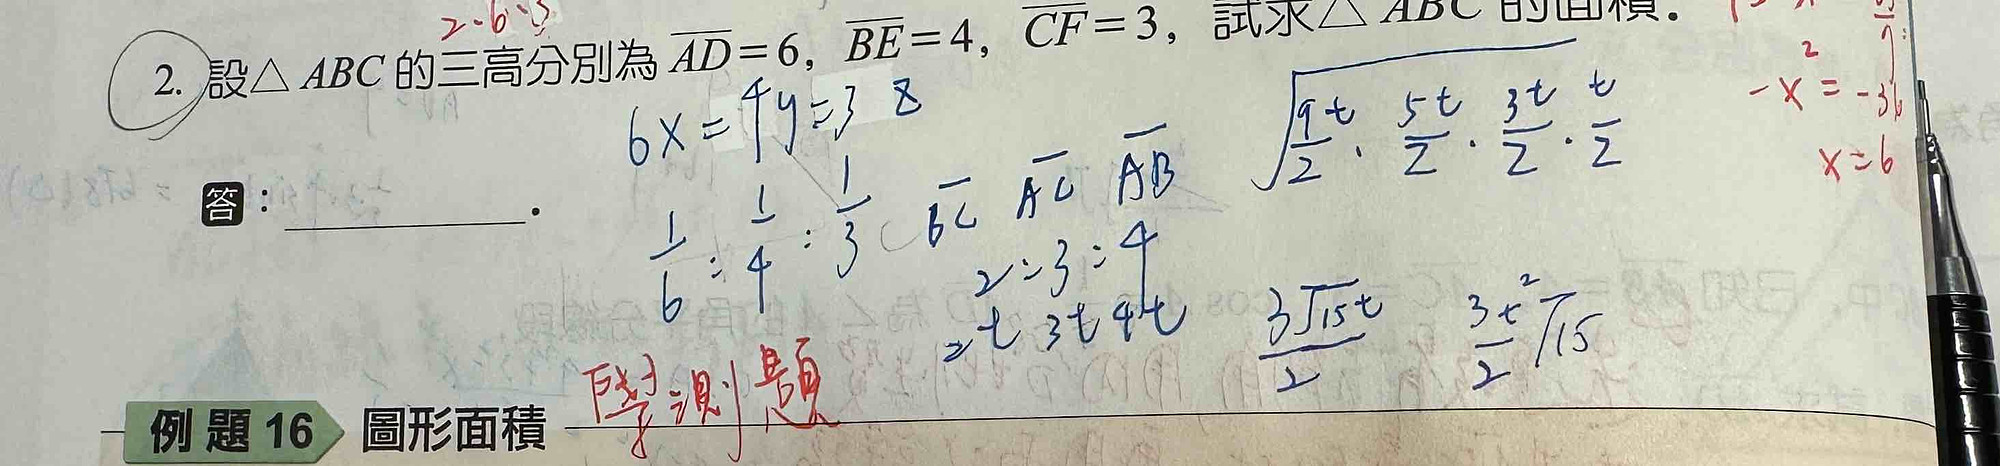 2·6·3
2. 設△ ABC 的三高分別為 AD=6, BE=4, CF=3, 試求△ ABC 的面積.
6x=4y=3z
答: .
1/6 : 1/4 : 1/3
BC AC AB
2:3:4
2t 3t 4t
√(9t/2 · 5t/2 · 3t/2 · t/2)
3√15t/2
3t²/2 √15
-x²=-36
x=6
學測題
例題 16 圖形面積